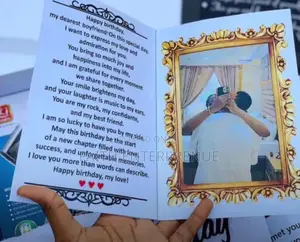 Happy birthday,
my dearest boyfriend! On this special day,
I want to express my love and
admiration for you.
You bring so much joy and
happiness into my life,
and I am grateful for every moment
we share together.
Your smile brightens my day,
and your laughter is music to my ears.
You are my rock, my confidante,
and my best friend.
I am so lucky to have you by my side.
May this birthday be the start
of a new chapter filled with love,
success, and unforgettable memories.
I love you more than words can describe.
Happy birthday, my love!